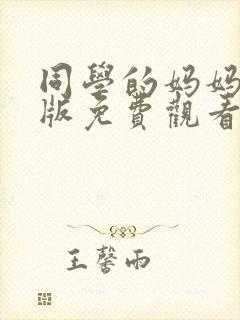 同學的妈妈
版免費觀看
王馨雨